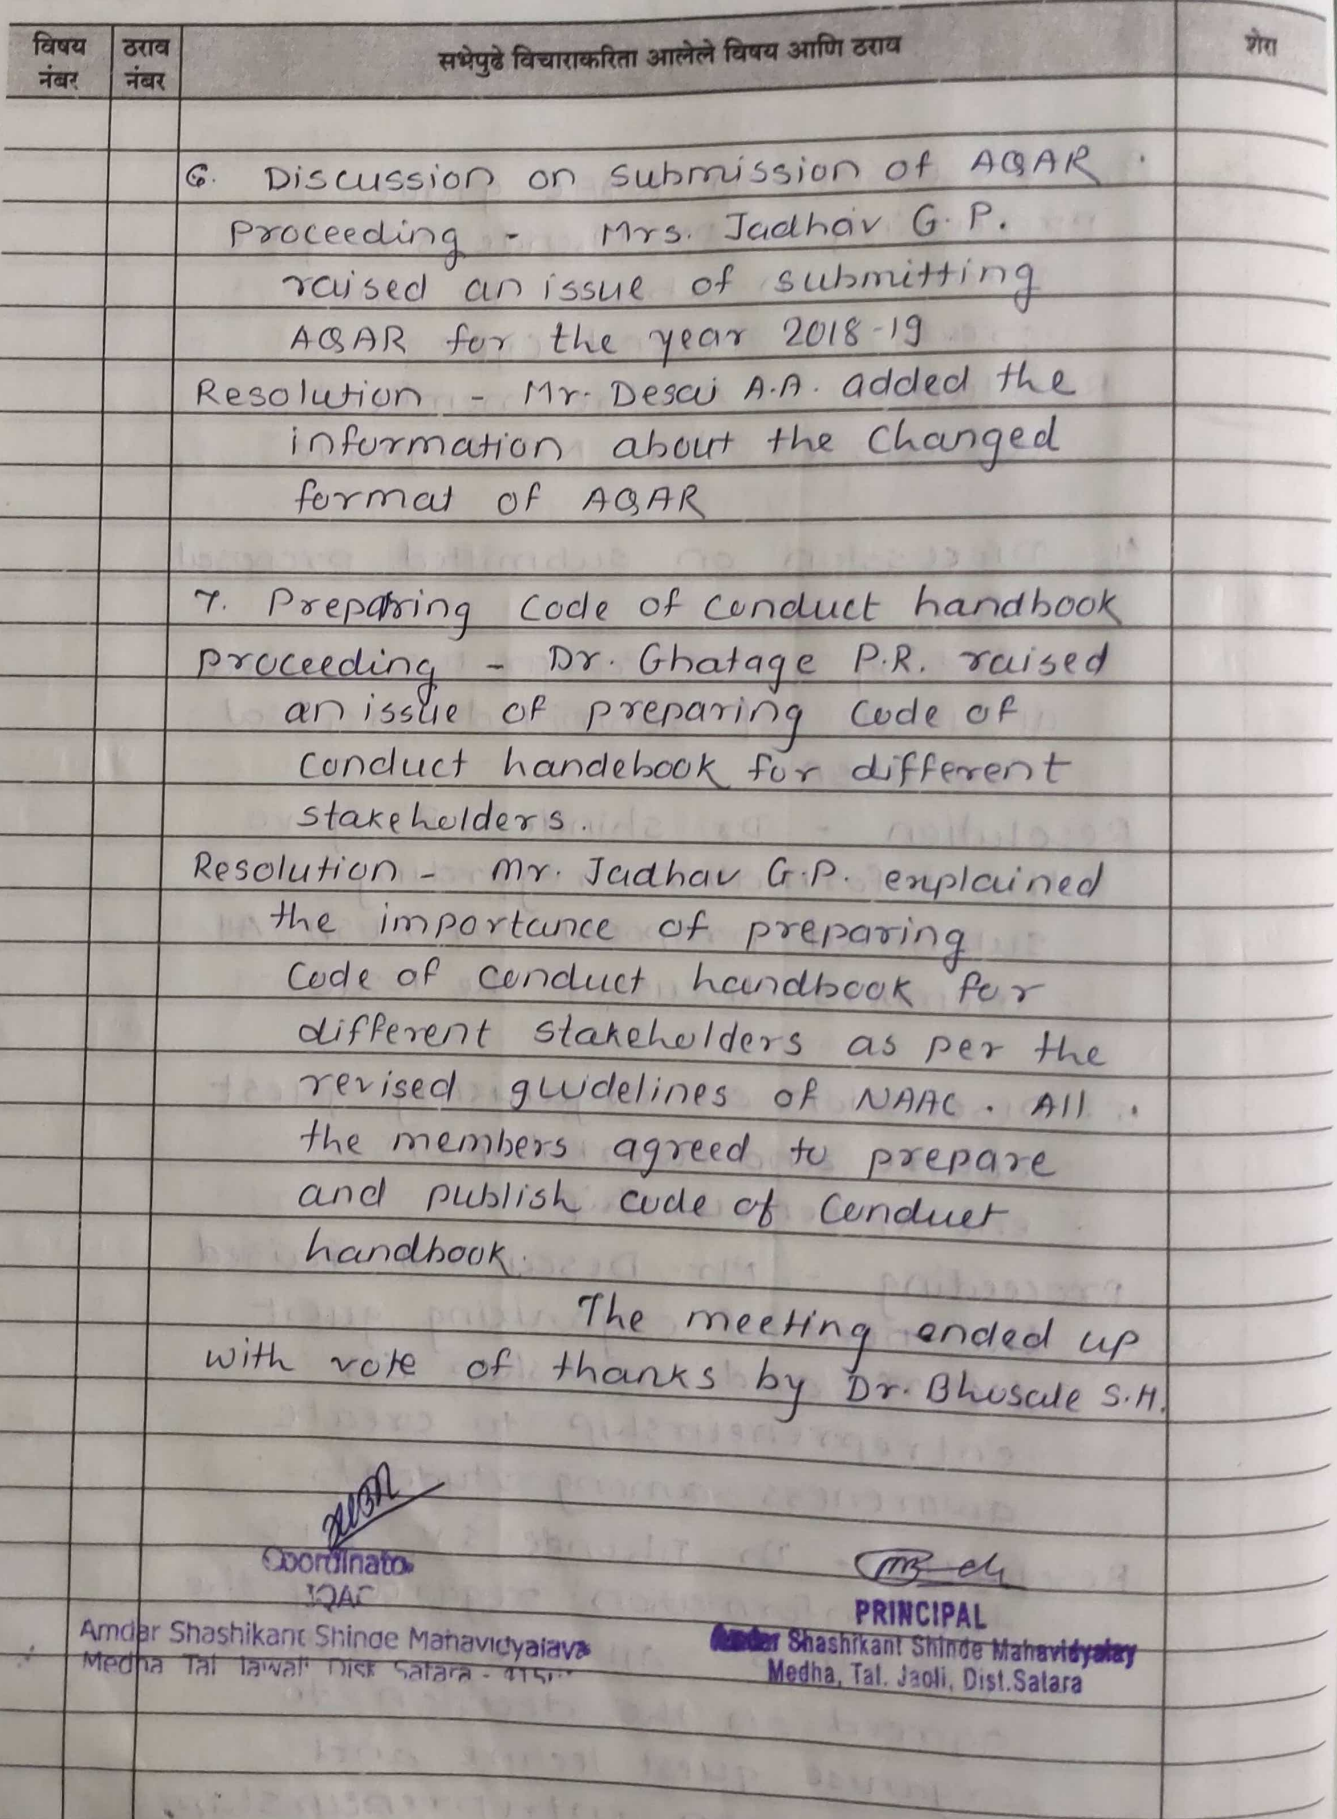 विषय नंबर
ठराव नंबर
सभेपुढे विचाराकरिता आलेले विषय आणि ठराव
शेरा
6. Discussion on submission of AQAR.
Proceeding - Mrs. Jadhav G.P.
raised an issue of submitting
AQAR for the year 2018-19
Resolution - Mr. Desai A.A. added the
information about the changed
format of AQAR
7. Preparing code of conduct handbook
Proceeding - Dr. Ghatage P.R. raised
an issue of preparing code of
conduct handebook for different
stakeholders.
Resolution - Mr. Jadhav G.P. explained
the importance of preparing
code of conduct handbook for
different stakeholders as per the
revised guidelines of NAAC. All
the members agreed to prepare
and publish code of conduct
handbook.
The meeting ended up
with vote of thanks by Dr. Bhosale S.H.
Coordinator
IQAC
Amdar Shashikant Shinde Mahavidyalaya
Medha Tal Jawali Dist Satara -
PRINCIPAL
Amdar Shashikant Shinde Mahavidyalay
Medha, Tal. Jaoli, Dist.Satara